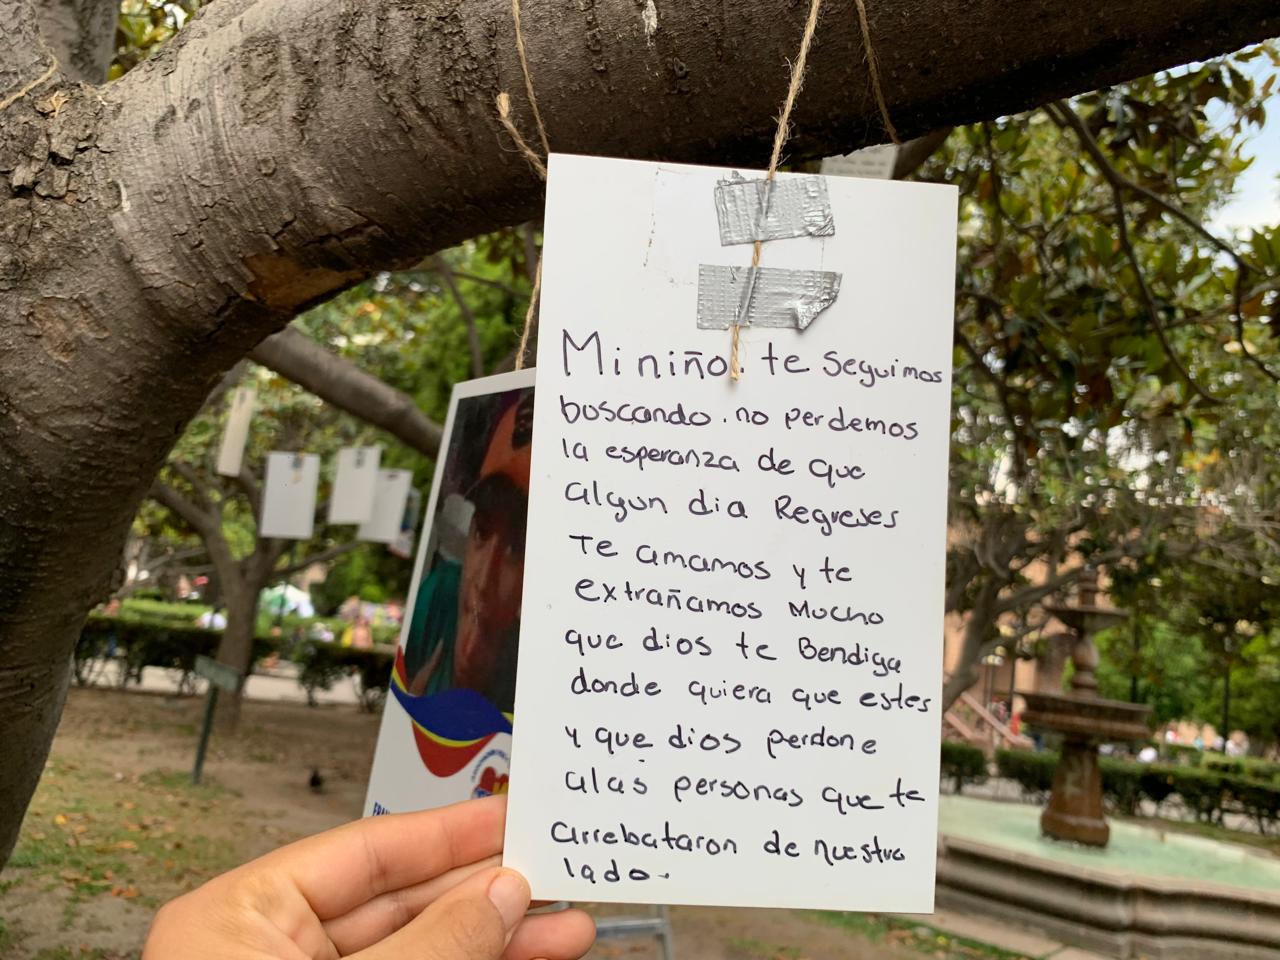 Mi niño. te seguimos
buscando. no perdemos
la esperanza de que
algun dia Regreses
Te amamos y te
extrañamos Mucho
que dios te Bendiga
donde quiera que estes
y que dios perdone
alas personas que te
arrebataron de nuestro
lado.